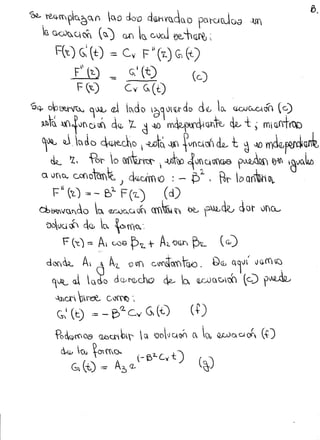 8.
Se reemplazan las dos derivadas parciales en
la ecuación (a) en la cual se tiene:
F(z) G'(t) = Cv F''(z) G(t)
F''(z) / F(z) = G'(t) / Cv G(t) (c)
Se observa que el lado izquierdo de la ecuación (c)
está en función de z y es independiente de t ; mientras
que el lado derecho, está en función de t y es independiente
de z. Por lo anterior, estas funciones pueden ser iguales
a una constante, decimos : - β². Por lo anterior
F''(z) = - β² F(z) (d)
Observando la ecuación anterior se puede dar una
solución de la forma:
F(z) = A₁ cos βz + A₂ sen βz (e)
donde A₁ y A₂ son constantes. De aquí vemos
que el lado derecho de la ecuación (c) puede
escribirse como :
G'(t) = - β² Cv G(t) (f)
Podemos escribir la solución a la ecuación (f)
de la forma
G(t) = A₃ e^(-β² Cv t) (g)